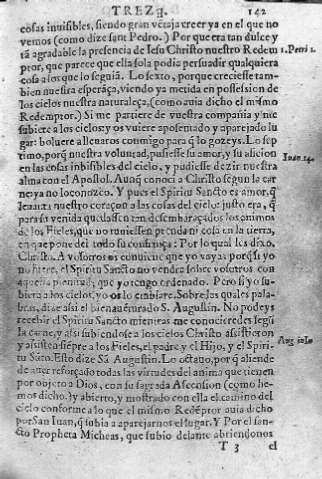 TREZ3. 142
cosas inuisibles, siendo gran vétaja creer ya en el que no
vemos (como dize sant Pedro.) Por que era tan dulce y
tã agradable la presencia de Iesu Christo nuestro Redem 1. Petri 1.
ptor, que parece que ella sola podia persuadir qualquiera
cosa a los que lo seguiã. Lo sexto, porque creciesse tam-
bien nuestra esperãça, viendo ya metida en possession de
los cielos nuestra naturaleça, (como auia dicho el mismo
Redemptor.) Si me partiere de vuestra compañia y me
subiere a los cielos: y os vuiere aposentado y aparejado lu
gar: boluere a lleuaros conmigo para q̃ lo gozeys. Lo sep Ioan. 14.
timo, porq̃ nuestra voluntad, pusiesse su amor, y su aficion
en las cosas inuisibles del cielo, y pudiesse dezir nuestra
alma con el Apostol. Aunq̃ conoci a Christo segun la car
ne ya no lo conozco. Y pues el Spiritu Sancto es amor, q̃
leuanta nuestro coraçon a las cosas del cielo: justo era, q̃
para su venida quedassen tan desembaraçados los animos
de los Fieles, que no tuuiessen prenda ni cosa en la tierra,
en que poner del todo su confiança: Por lo qual les dixo,
Christo. A vosotros os conuiene que yo vaya: porq̃ si yo
no fuere, el Spiritu Sancto no vendra sobre vosotros con
aquella plenitud, que yo tengo ordenado. Pero si yo su-
biere a los cielos, yo os lo embiare. Sobre las quales pala-
bras, dize assi el bienauenturado S. Augustin. No podeys
recebir el Spiritu Sancto mientras me conocieredes segũ
la carne, y assi subiendose a los cielos Christo assistieron
y assisten siẽpre a los Fieles, el padre y el Hijo, y el Spiri-
tu Sãto. Esto dize Sã Augustin. Lo octauo, por q̃ allende
de auer reforçado todas las virtudes del anima que tienen
por objeto a Dios, con su sagrada Ascension (como he-
mos dicho:) y abierto, y mostrado con ella el camino del
cielo conforme a lo que el mismo Redẽptor auia dicho
por San Iuan, q̃ subia a aparejarnos el lugar. Y Por el san-
cto Propheta Micheas, que subio delante abriendonos
T 3 el